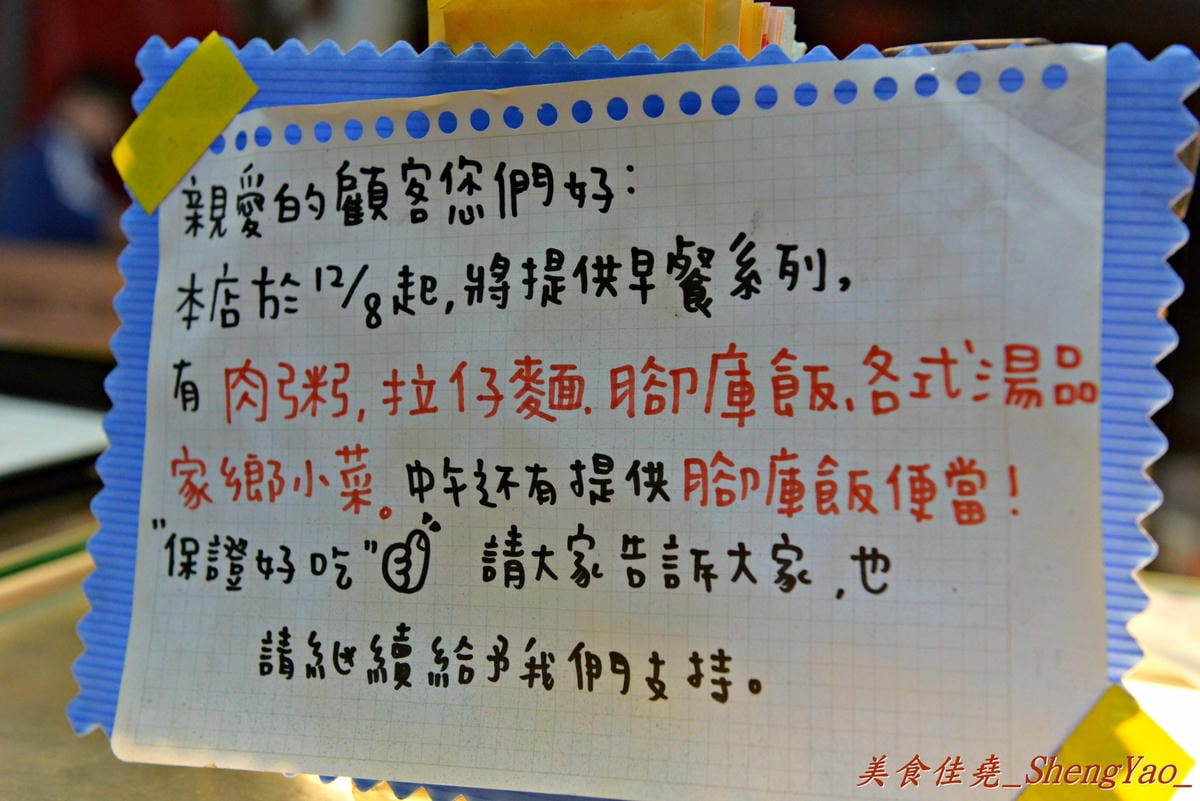 親愛的顧客您們好：
本店於12/8起,將提供早餐系列,
有 肉粥,拉仔麵、腳庫飯、各式湯品
家鄉小菜。中午还有提供腳庫飯便當！
"保證好吃" 請大家告訴大家,也
請繼續給予我們支持。
美食佳堯_ShengYao_